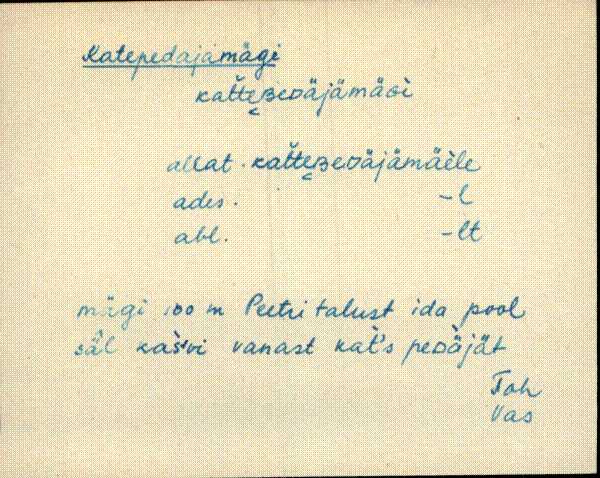 Katepedajamägi
kat̆t̆eʙeᴅäjämäɢi
allat. kat̆t̆eʙeᴅäjämäèle
ades. -l
abl. -lt
mägi 100 m Peetri talust ida pool
säl kàsvi vanast kat's peᴅäjät
Toh
Vas